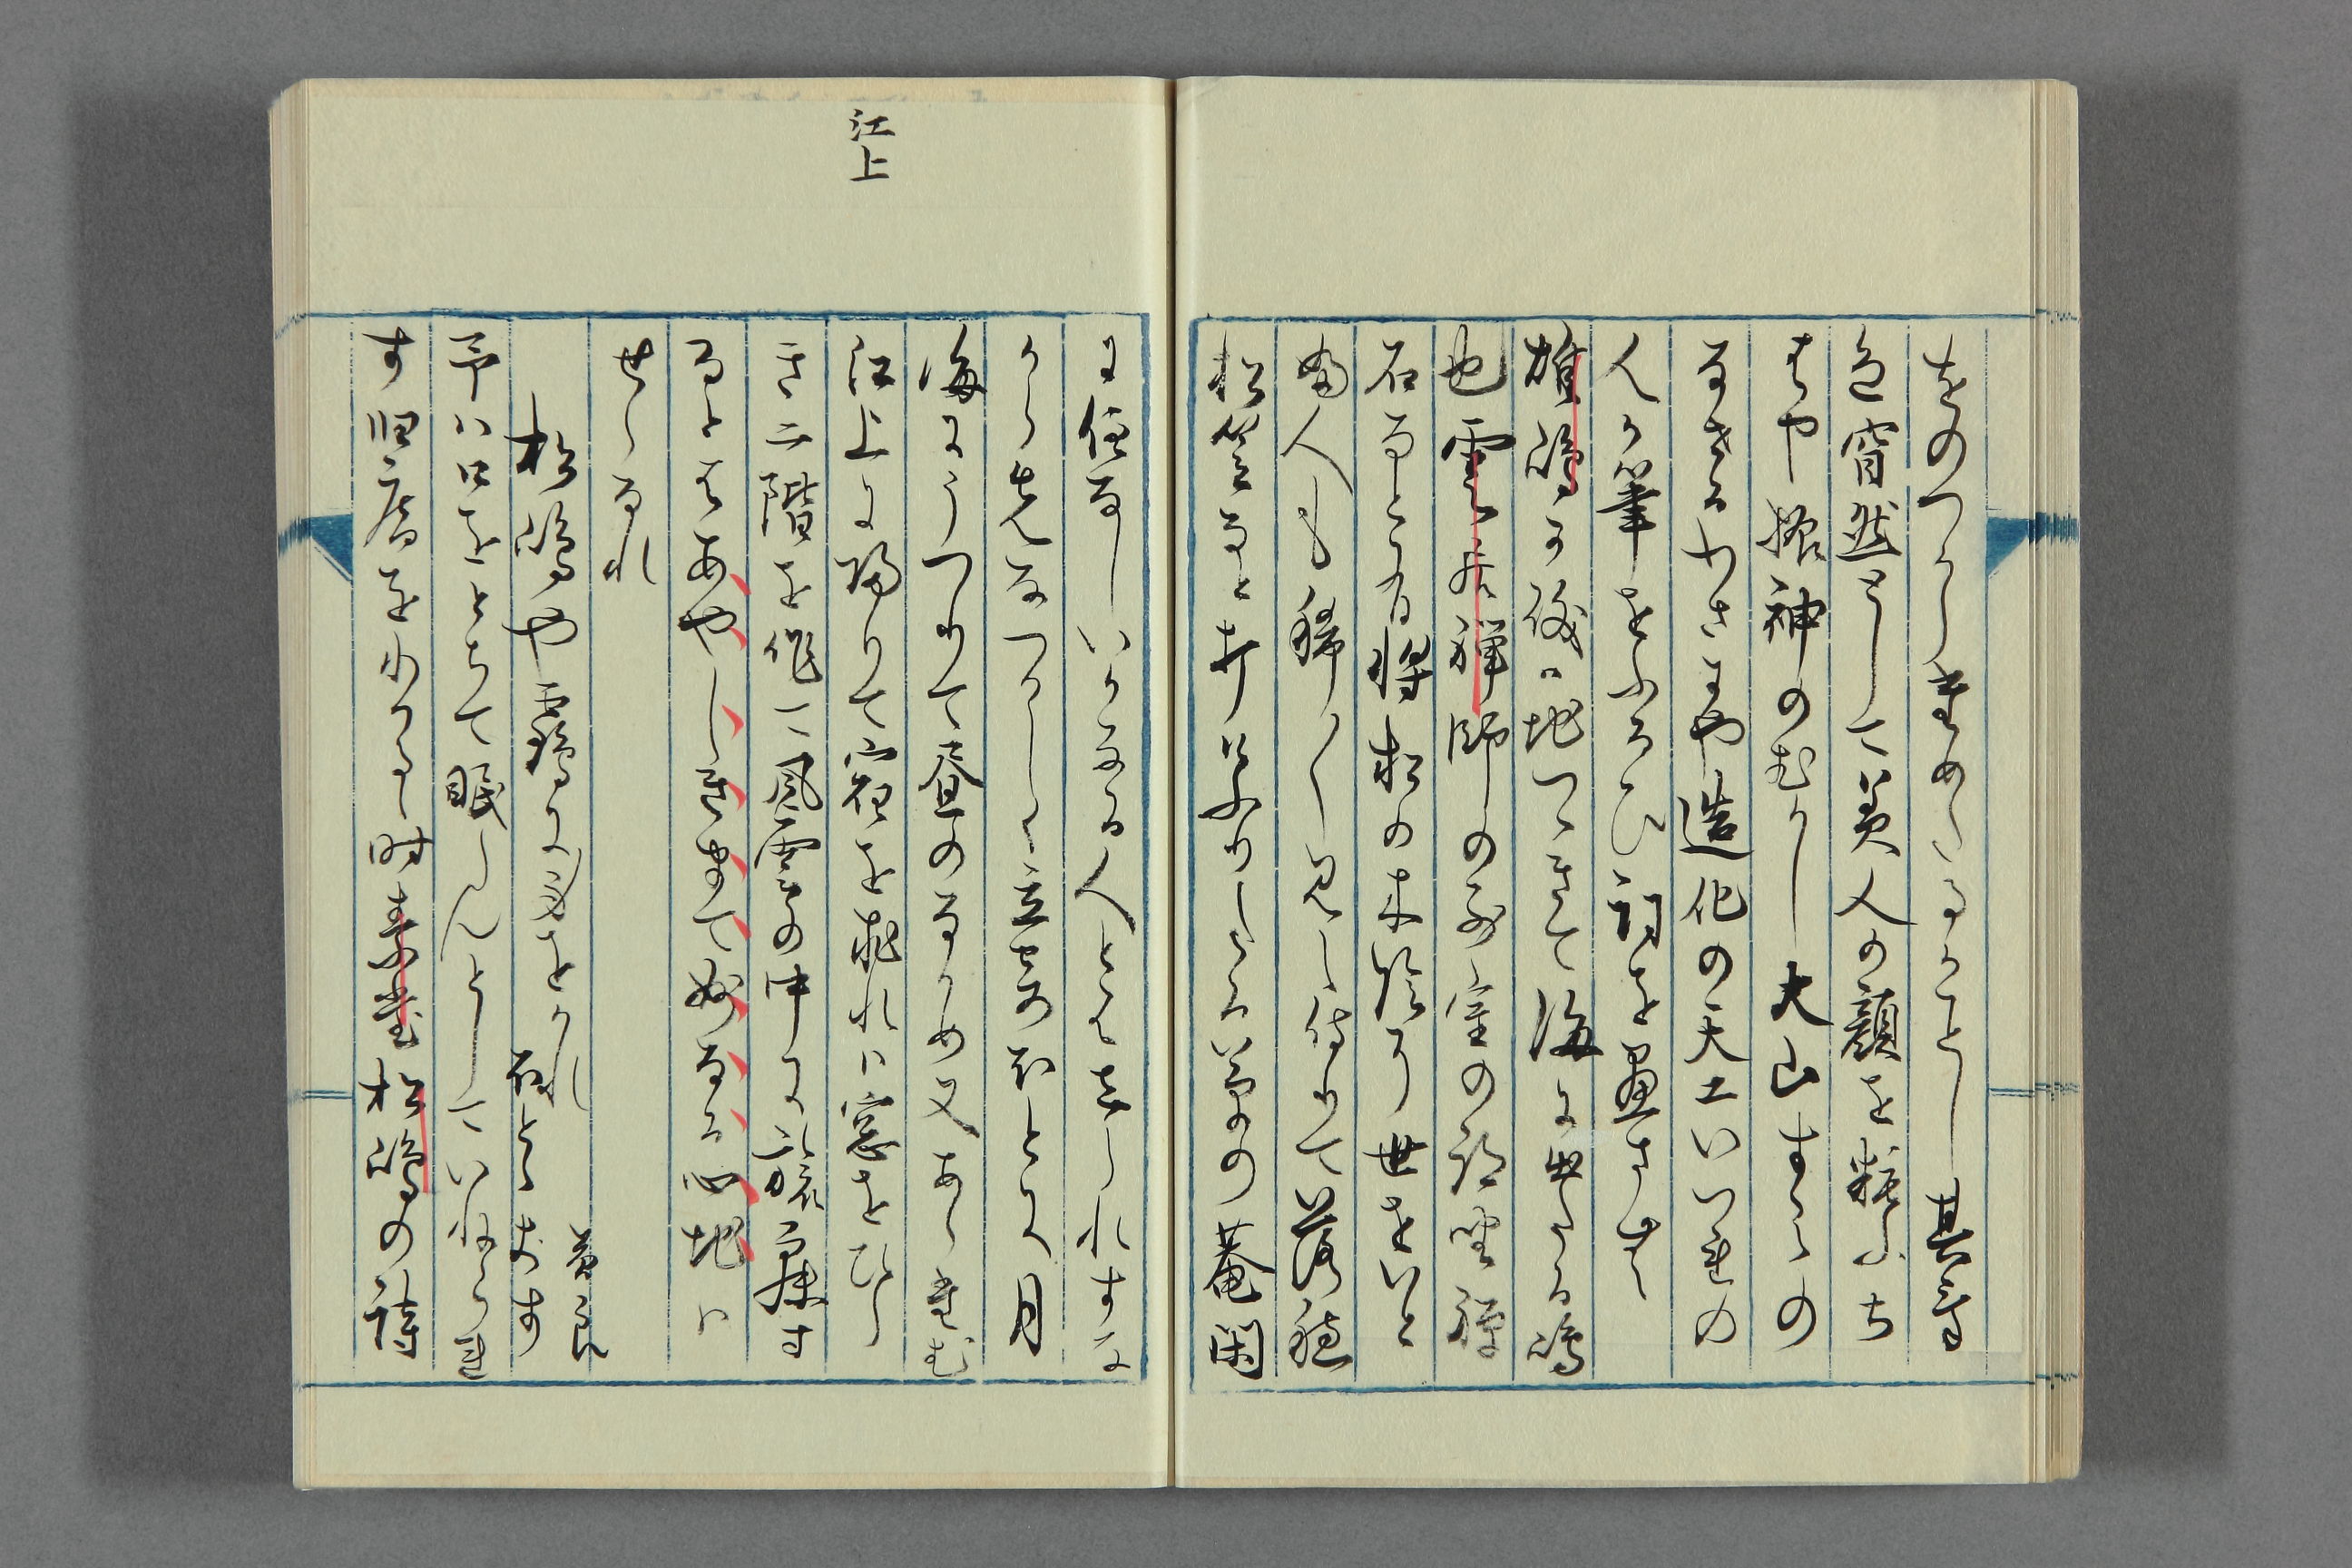 をのつからためたるかことし其気
色窅然として美人の顔を粧ふち
はや振神のむかし大山すミの
なせるわさにや造化の天工いつれの
人か筆をふるひ詞を尽さむ
雄嶋か磯ハ地つゝきて海に出たる嶋
也雲居禅師の別室の跡坐禅
石なと有将松の木陰に世をいと
ふ人も稀々見え侍りて落穂
松笠なと打けふりたる草の菴閑
に住なしいかなる人とはしられすな
から先なつかしく立寄ほとに月
海にうつりて昼のなかめ又あらたむ
江上
江上に帰りて宿を求れハ窓をひら
き二階を作て風雲の中に旅寐す
るこそあやしきまて妙なる心地ハ
せらるれ
松嶋や靏に身をかれほとゝきす
曽良
予ハ口をとちて眠らんとしていねられ
す旧庵をわかるゝ時素堂松嶋の詩